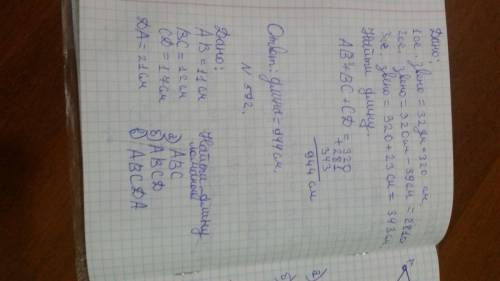 Дано:
1ое звено = 32дм = 320 см.
2ое звено = 320см - 39см = 281см
3ье звено = 320 + 23см = 343см.
Найти длину:
AB+BC+CD = 320
+ 281
343
944 см
Ответ: длина = 944см.
N 592.
Дано:
AB = 11см
BC = 12см
CD = 17см
DA = 21см
Найти длину
ломаной
а) ABC
б) ABCD
в) ABCDA
а)
б)